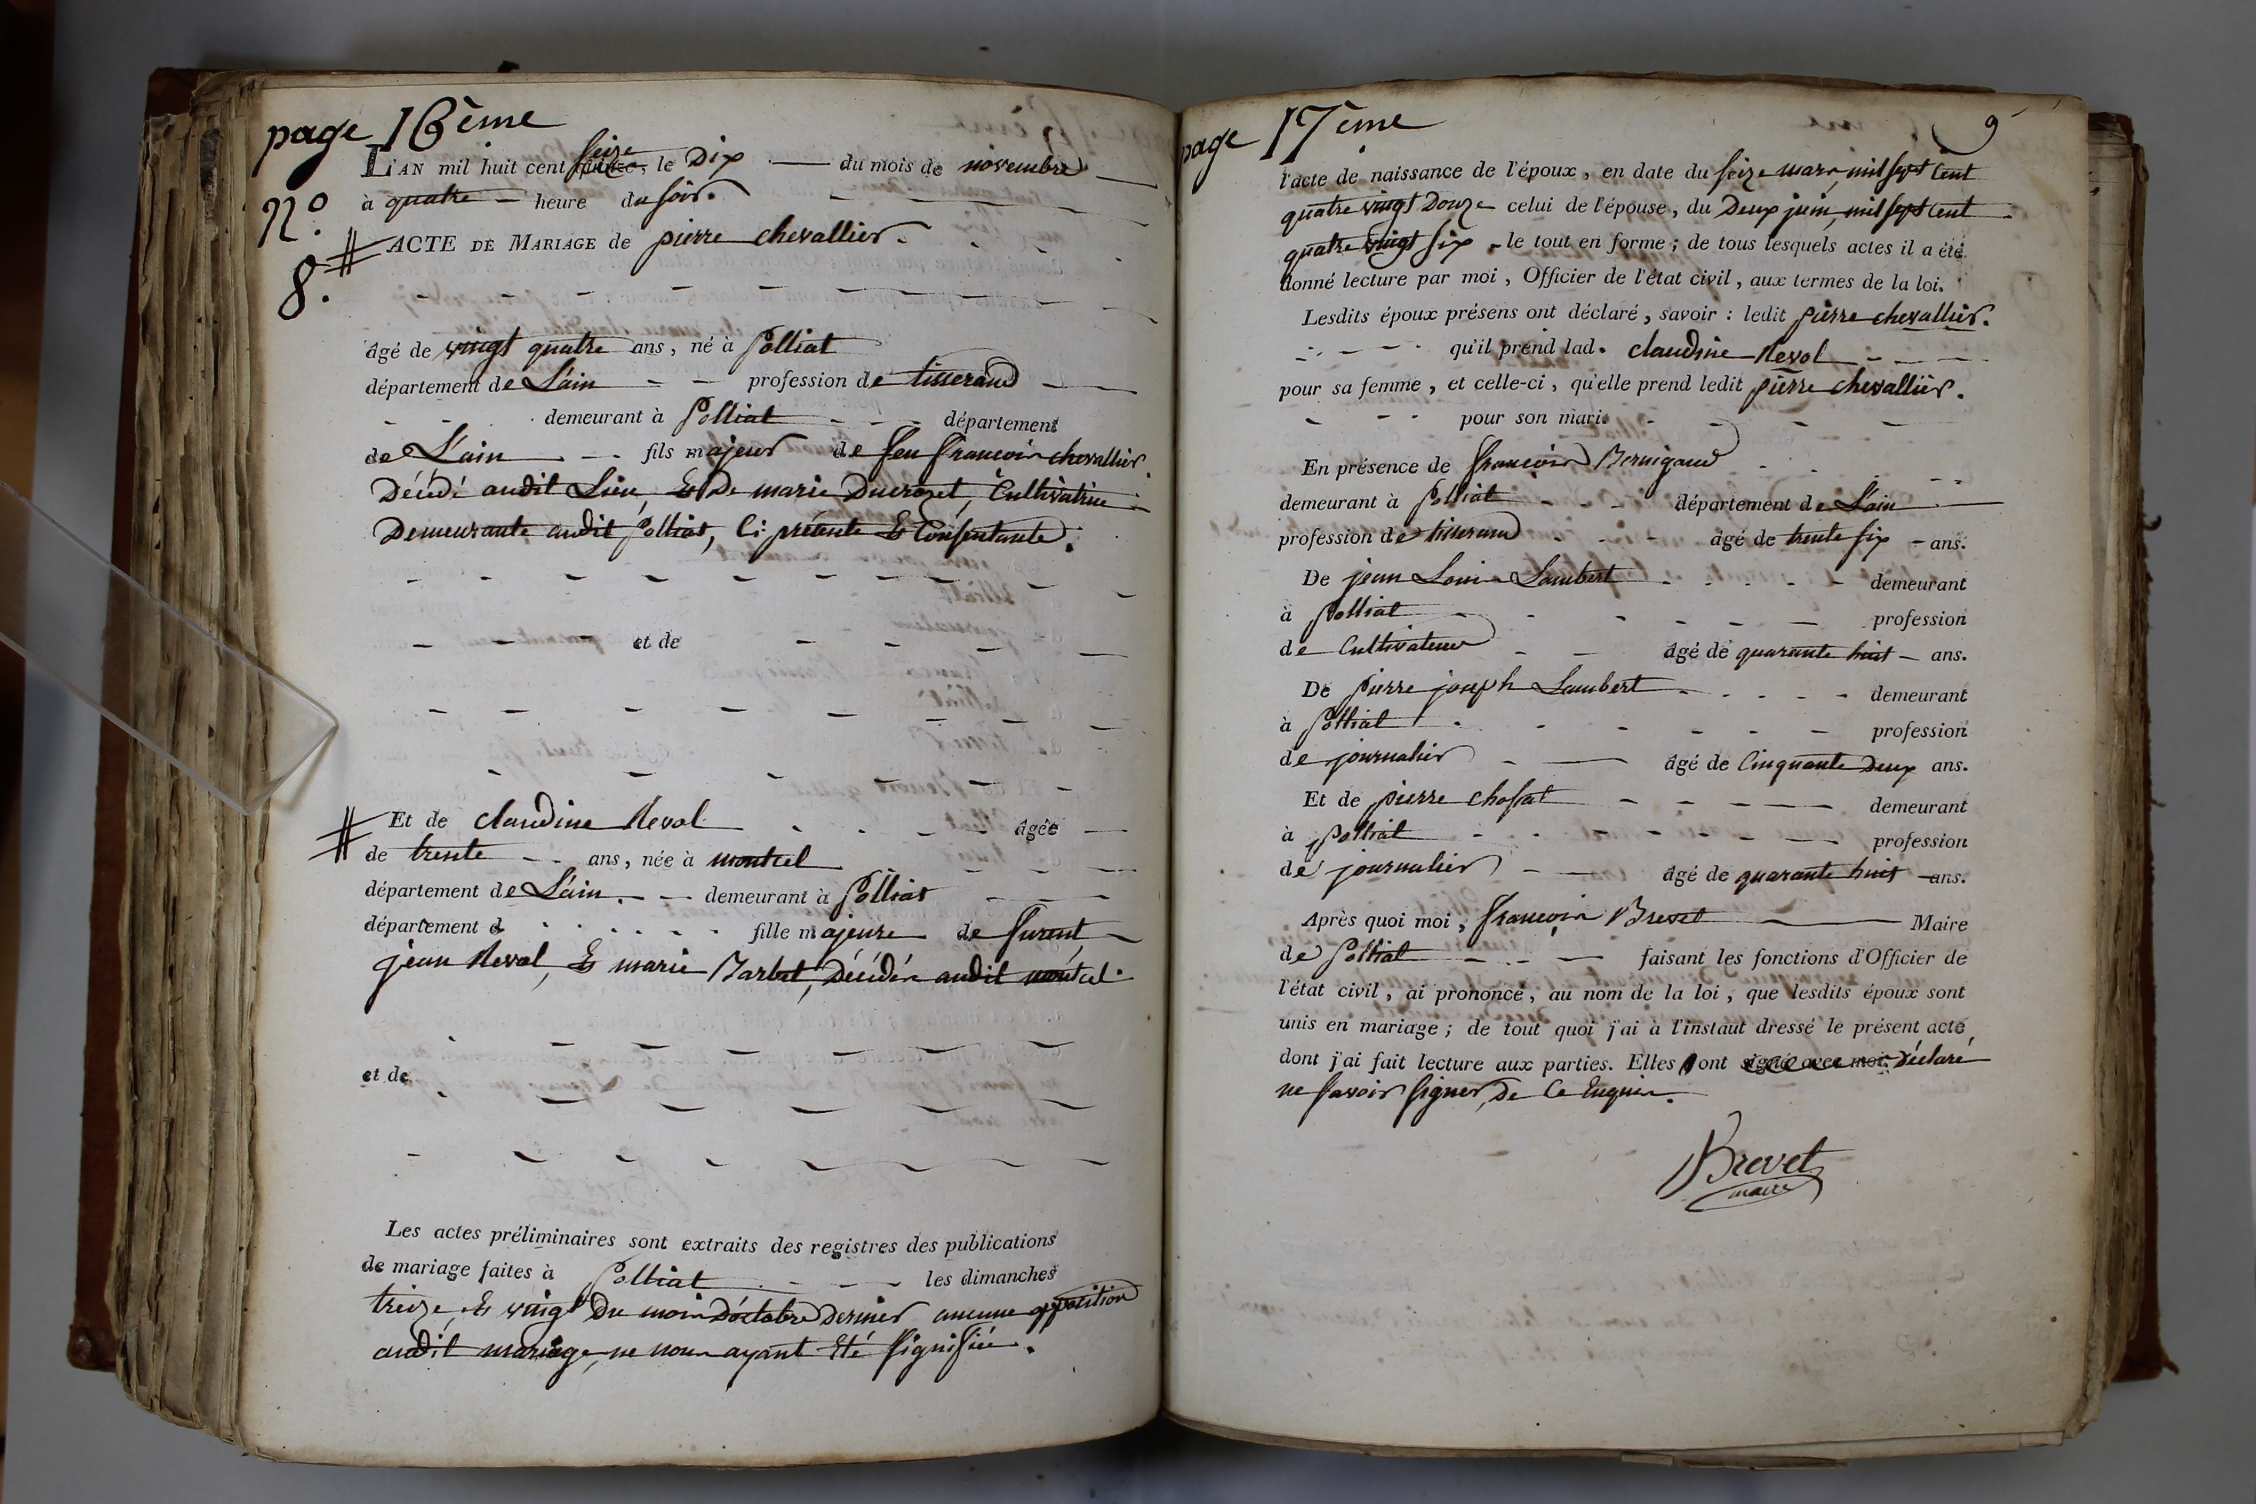 page 16ème
L'AN mil huit cent seize, le Dix du mois de novembre
à quatre heure du soir.
N.º 8.
ACTE DE MARIAGE de pierre chevallier.
âgé de vingt quatre ans, né à Polliat
département de L'ain profession de tisserand
demeurant à Polliat département
de L'ain fils majeur de feu francois chevallier
Décédé audit Lieu, Et De marie Ducrozet, Cultivatrice
Demeurante audit Polliat, Ci présente Et Consentante.
et de
Et de claudine Revol âgée
de trente ans, née à montcel
département de L'ain. demeurant à Polliat
département d fille majeure de furent
jean Revol, Et marie Barbet, Décédés audit montcel.
et de
Les actes préliminaires sont extraits des registres des publications
de mariage faites à Polliat les dimanches
treize, Et vingt Du mois D'octobre Dernier aucune opposition
audit mariage, ne nous ayant Eté signifiée.
page 17ème
9
l'acte de naissance de l'époux, en date du seize mars, mil sept cent
quatre vingt Douze celui de l'épouse, du Deux juin, mil sept cent
quatre vingt six, le tout en forme; de tous lesquels actes il a été
donné lecture par moi, Officier de l'état civil, aux termes de la loi.
Lesdits époux présens ont déclaré, savoir: ledit pierre chevallier.
qu'il prend lad. claudine Revol
pour sa femme, et celle-ci, qu'elle prend ledit pierre chevallier.
pour son mari.
En présence de francois Bernigaud
demeurant à Polliat département de L'ain
profession de tisserand âgé de trente six ans.
De jean Louis Lambert demeurant
à Polliat profession
de Cultivateur âgé de quarante huit ans.
De pierre joseph Lambert demeurant
à Polliat profession
de journalier âgé de Cinquante Deux ans.
Et de pierre chossat demeurant
à Polliat profession
de journalier âgé de quarante huit ans.
Après quoi moi, françois Brevet Maire
de Polliat faisant les fonctions d'Officier de
l'état civil, ai prononcé, au nom de la loi, que lesdits époux sont
unis en mariage; de tout quoi j'ai à l'instant dressé le présent acte
dont j'ai fait lecture aux parties. Elles ont signé avec moi. Déclaré
ne savoir signer, De Ce Enquis.
Brevet
maire